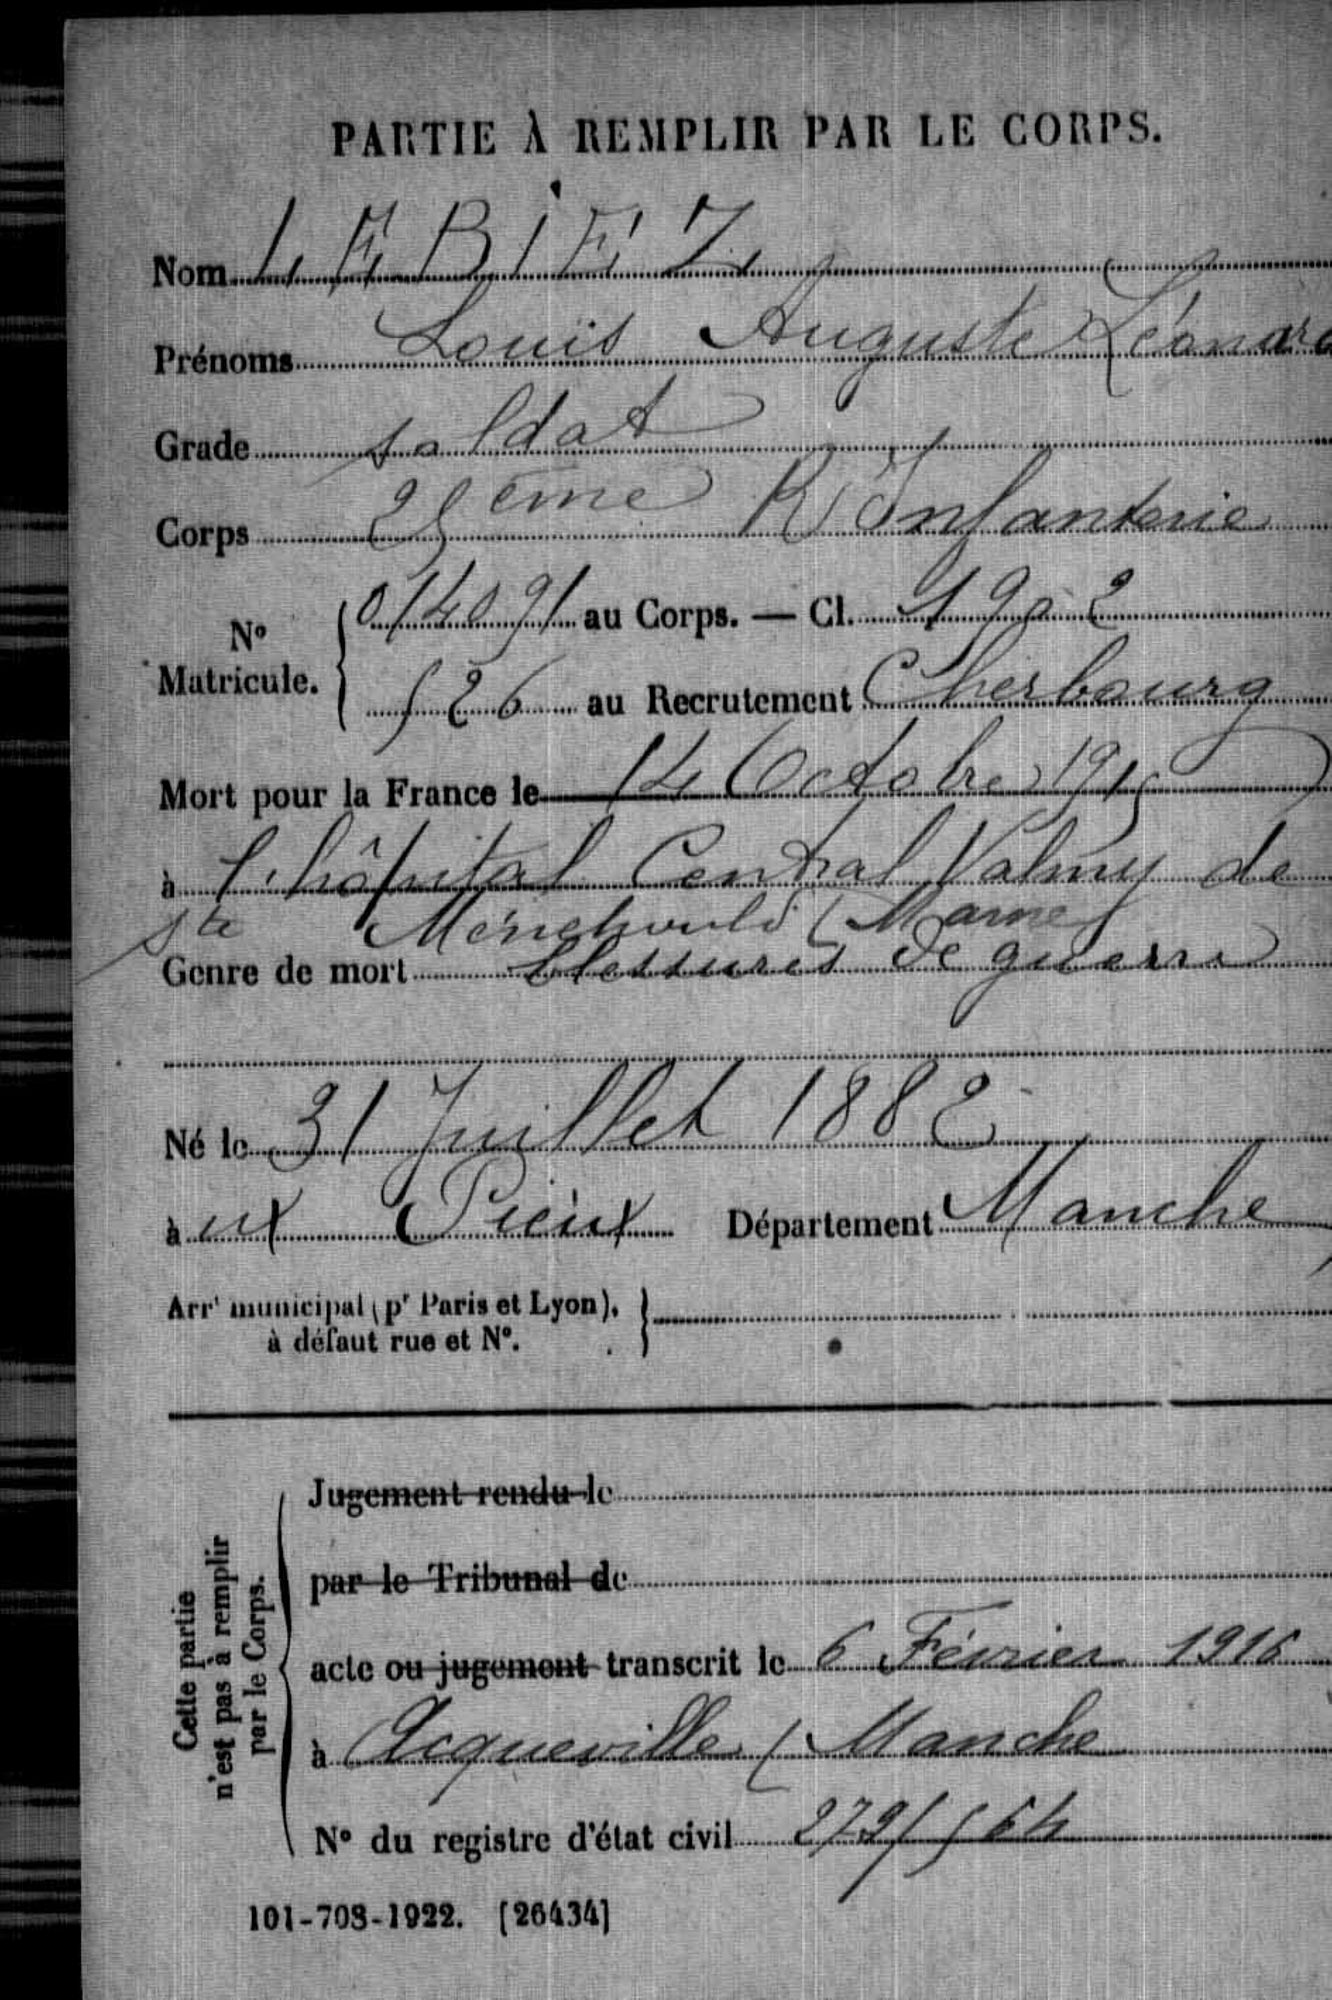 PARTIE À REMPLIR PAR LE CORPS.
Nom LEBIEZ
Prénoms Louis Auguste Léonard
Grade soldat
Corps 25ème R Infanterie
N° Matricule. 014091 au Corps. — Cl. 1902
526 au Recrutement Cherbourg
Mort pour la France le 14 Octobre 1915
à l'hôpital Central Valmy de
Ste Ménehould (Marne)
Genre de mort blessures de guerre
Né le 31 Juillet 1882
à ux Pieux Département Manche
Arrt municipal (pr Paris et Lyon),
à défaut rue et N°.
Cette partie
n'est pas à remplir
par le Corps.
Jugement rendu le
par le Tribunal de
acte ou jugement transcrit le 6 Février 1916
à Acqueville (Manche
N° du registre d'état civil 279/564
101-708-1922. [26434]